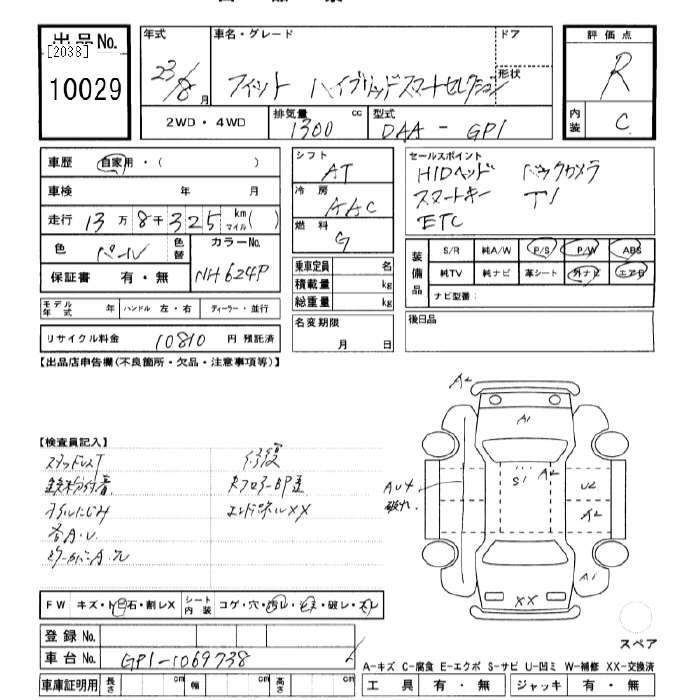 出品No.
[2038]
10029
年式 23/8月
車名・グレード
フィット ハイブリッドスマートセレクション
ドア
形状
評価点 R
内装 C
2WD・4WD 排気量 1300 cc 型式 DAA-GP1
車歴 自家用・( )
車検 年 月
走行 13万8千325 km マイル( )
色 パール 色替 カラーNo. NH624P
保証書 有・無
モデル年式 年 ハンドル 左・右 ディーラー・並行
リサイクル料金 10810 円 預託済
シフト AT
冷房 AAC
燃料 G
乗車定員 名
積載量 kg
総重量 kg
名変期限 月 日
セールスポイント
HIDヘッド バックカメラ
スマートキー TV
ETC
装備品 S/R 純A/W P/S P/W ABS
純TV 純ナビ 革シート 外ナビ エアB
ナビ型番:
後日品
【出品店申告欄(不良箇所・欠品・注意事項等)】
【検査員記入】
スタッドレスT 修復
鉄粉付着
オイルにじみ エンドパネルXX
各A・U
A2
A1
S1 A2
U2
A2
AU4
破れ
A1
XX
スペア
FW キズ・ト ビ石・割レX シート内装 コゲ・穴・汚レ・キズ・破レ・スレ
登録No.
車台No. GP1-1069738
車庫証明用 長さ cm 幅 cm 高さ cm
A-キズ C-腐食 E-エクボ S-サビ U-凹ミ W-補修 XX-交換済
工具 有・無 ジャッキ 有・無